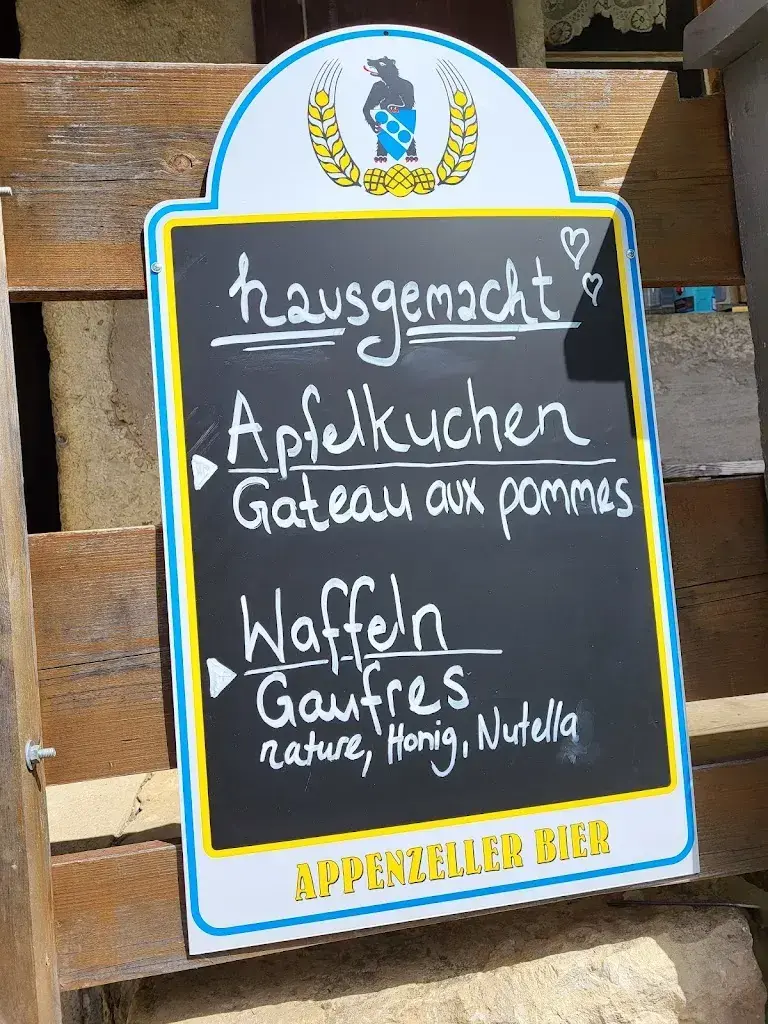 hausgemacht
Apfelkuchen
Gateau aux pommes
Waffeln
Gaufres
nature, Honig, Nutella
APPENZELLER BIER